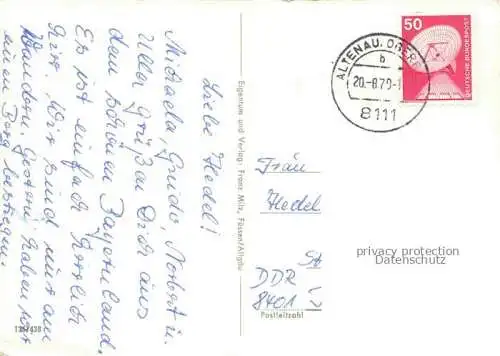 Liebe Hedel!
Michaela, Guido, Norbert u.
Ulla grüßen Dich aus
dem schönen Bayernland.
Es ist einfach herrlich
hier. Wir sind nur am
Wandern. Gestern haben wir
einen Berg bestiegen.
Eigentum und Verlag: Franz Milz, Füssen/Allgäu
ALTENAU, OBERB
b
20.-8.79-1
8111
50
DEUTSCHE BUNDESPOST
Fräu
Hedel
DDR
8401
Postleitzahl
privacy protection
Datenschutz